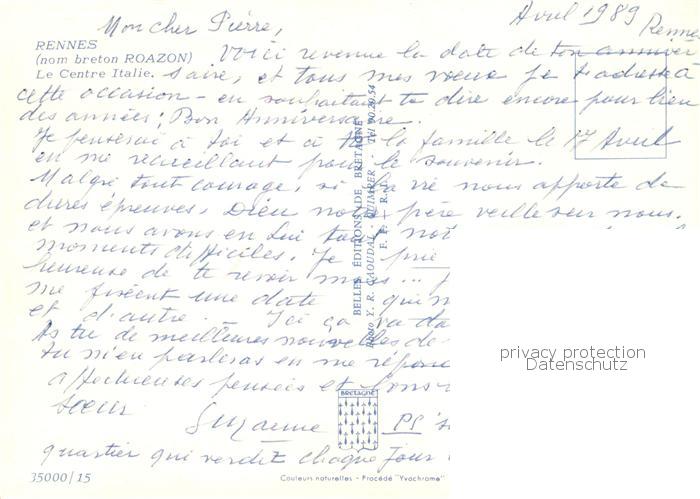 Avril 1989
Rennes
Mon cher Pierre,
RENNES
(nom breton ROAZON)
Le Centre Italie.
Voici revenue la date de ton anniver
saire, et tous mes vœux je t'adresse à
cette occasion - en souhaitant te dire encore pour bien
des années: Bon Anniversaire.
Je penserai à toi et à ta la famille le 17 Avril
en me recueillant pour le souvenir.
Malgré tout courage, si la vie nous apporte de
dures épreuves. Dieu notre père veille sur nous.
et nous avons en Lui
moments difficiles. Je
heureuse de te revoir mais...
me fixent une date qui
et d'autre. Ici ça va
As tu de meilleures nouvelles de
tu m'en parleras en me
affectueuses pensées et
sœur
Suzanne
PS
quartier qui verdit chaque jour
BELLES ÉDITIONS DE BRETAGNE
Photo Y. R. CAOUDAL - QUIMPER - Tél 90.29.54
BRETAGNE
privacy protection
Datenschutz
35000/15
Couleurs naturelles - Procédé "Yvochrome"